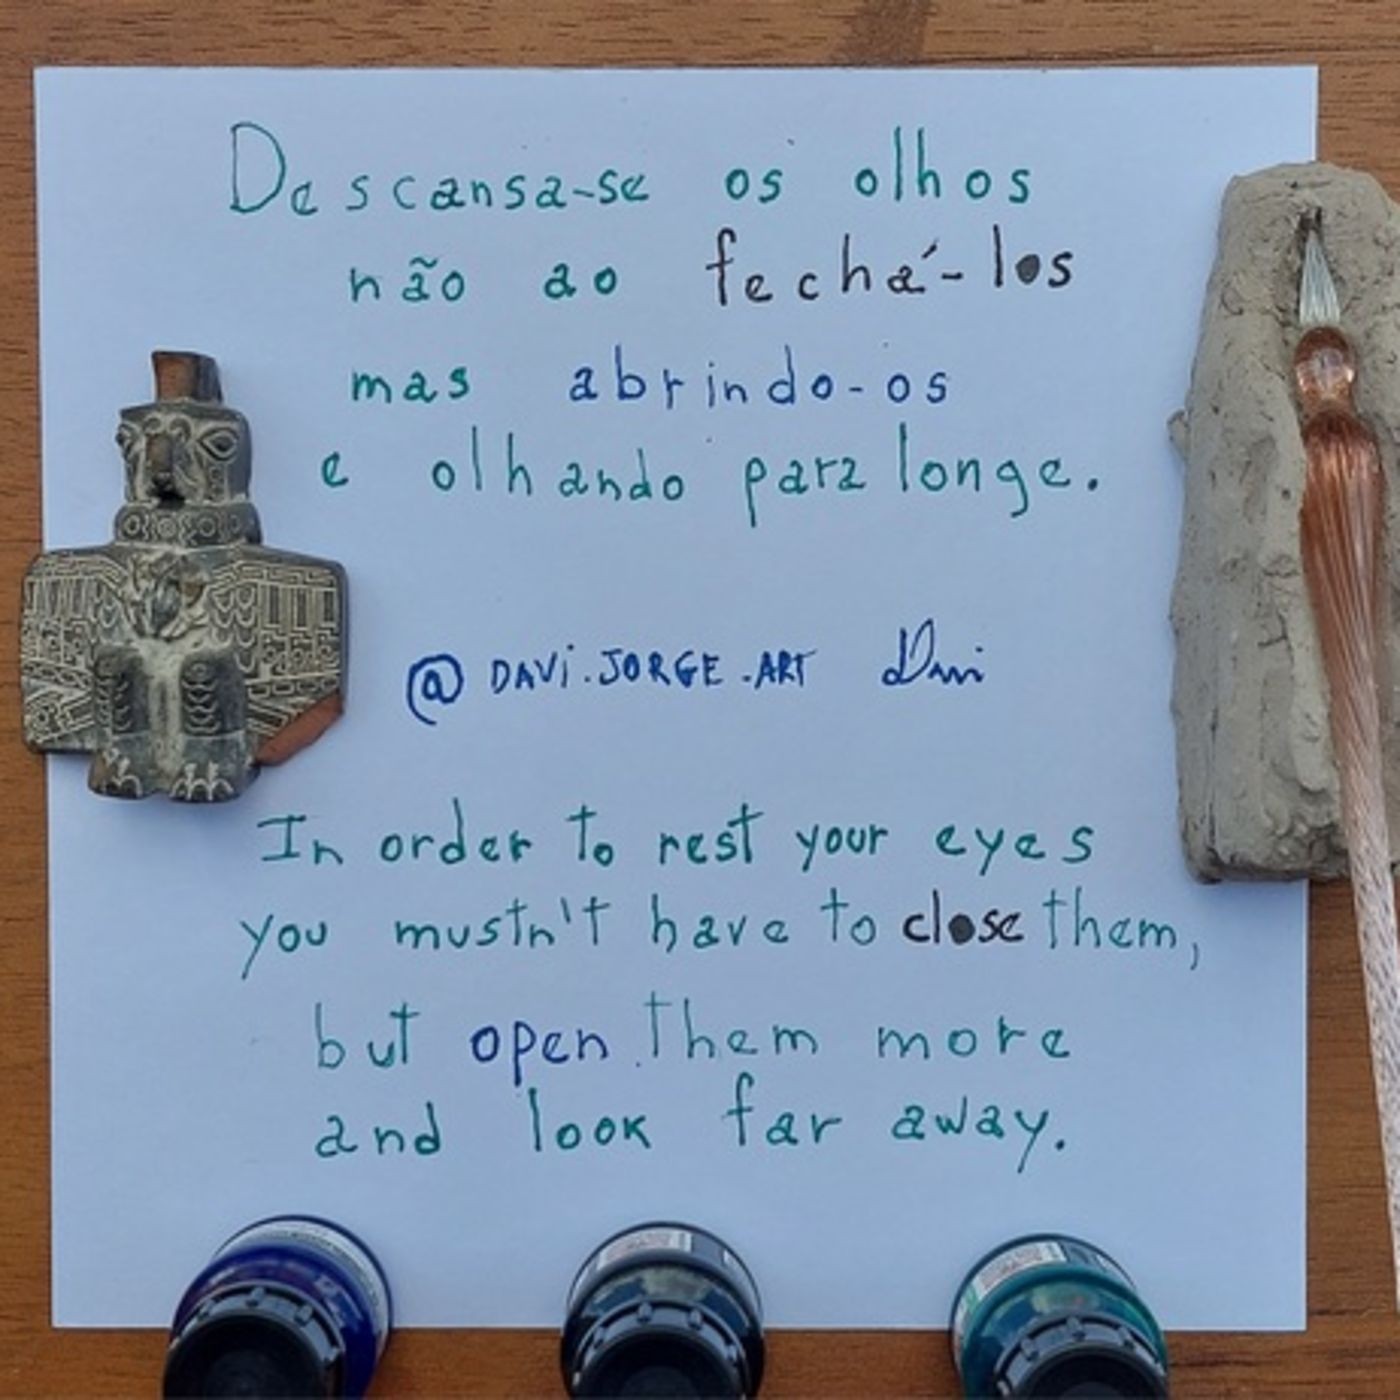 Descansa-se os olhos
não ao fechá-los
mas abrindo-os
e olhando para longe.
@DAVI.JORGE.ART Davi
In order to rest your eyes
you mustn't have to close them,
but open them more
and look far away.